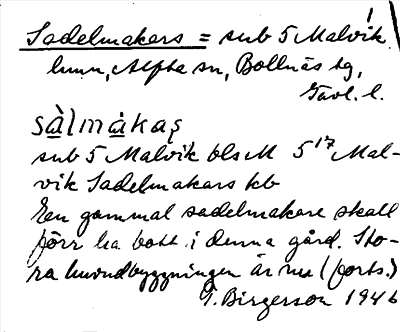 Sadelmakers = sub 5 Malvik
hmn, Alfta sn, Bollnäs tg,
Gävl. l.
sàlmàkaș
sub 5 Malvik bls M 5¹⁷ Mal-
vik Sadelmakars kb
En gammal sadelmakare skall
förr ha bott i denna gård. Sto-
ra huvudbyggningen är nu (forts.)
G. Birgerson 1946